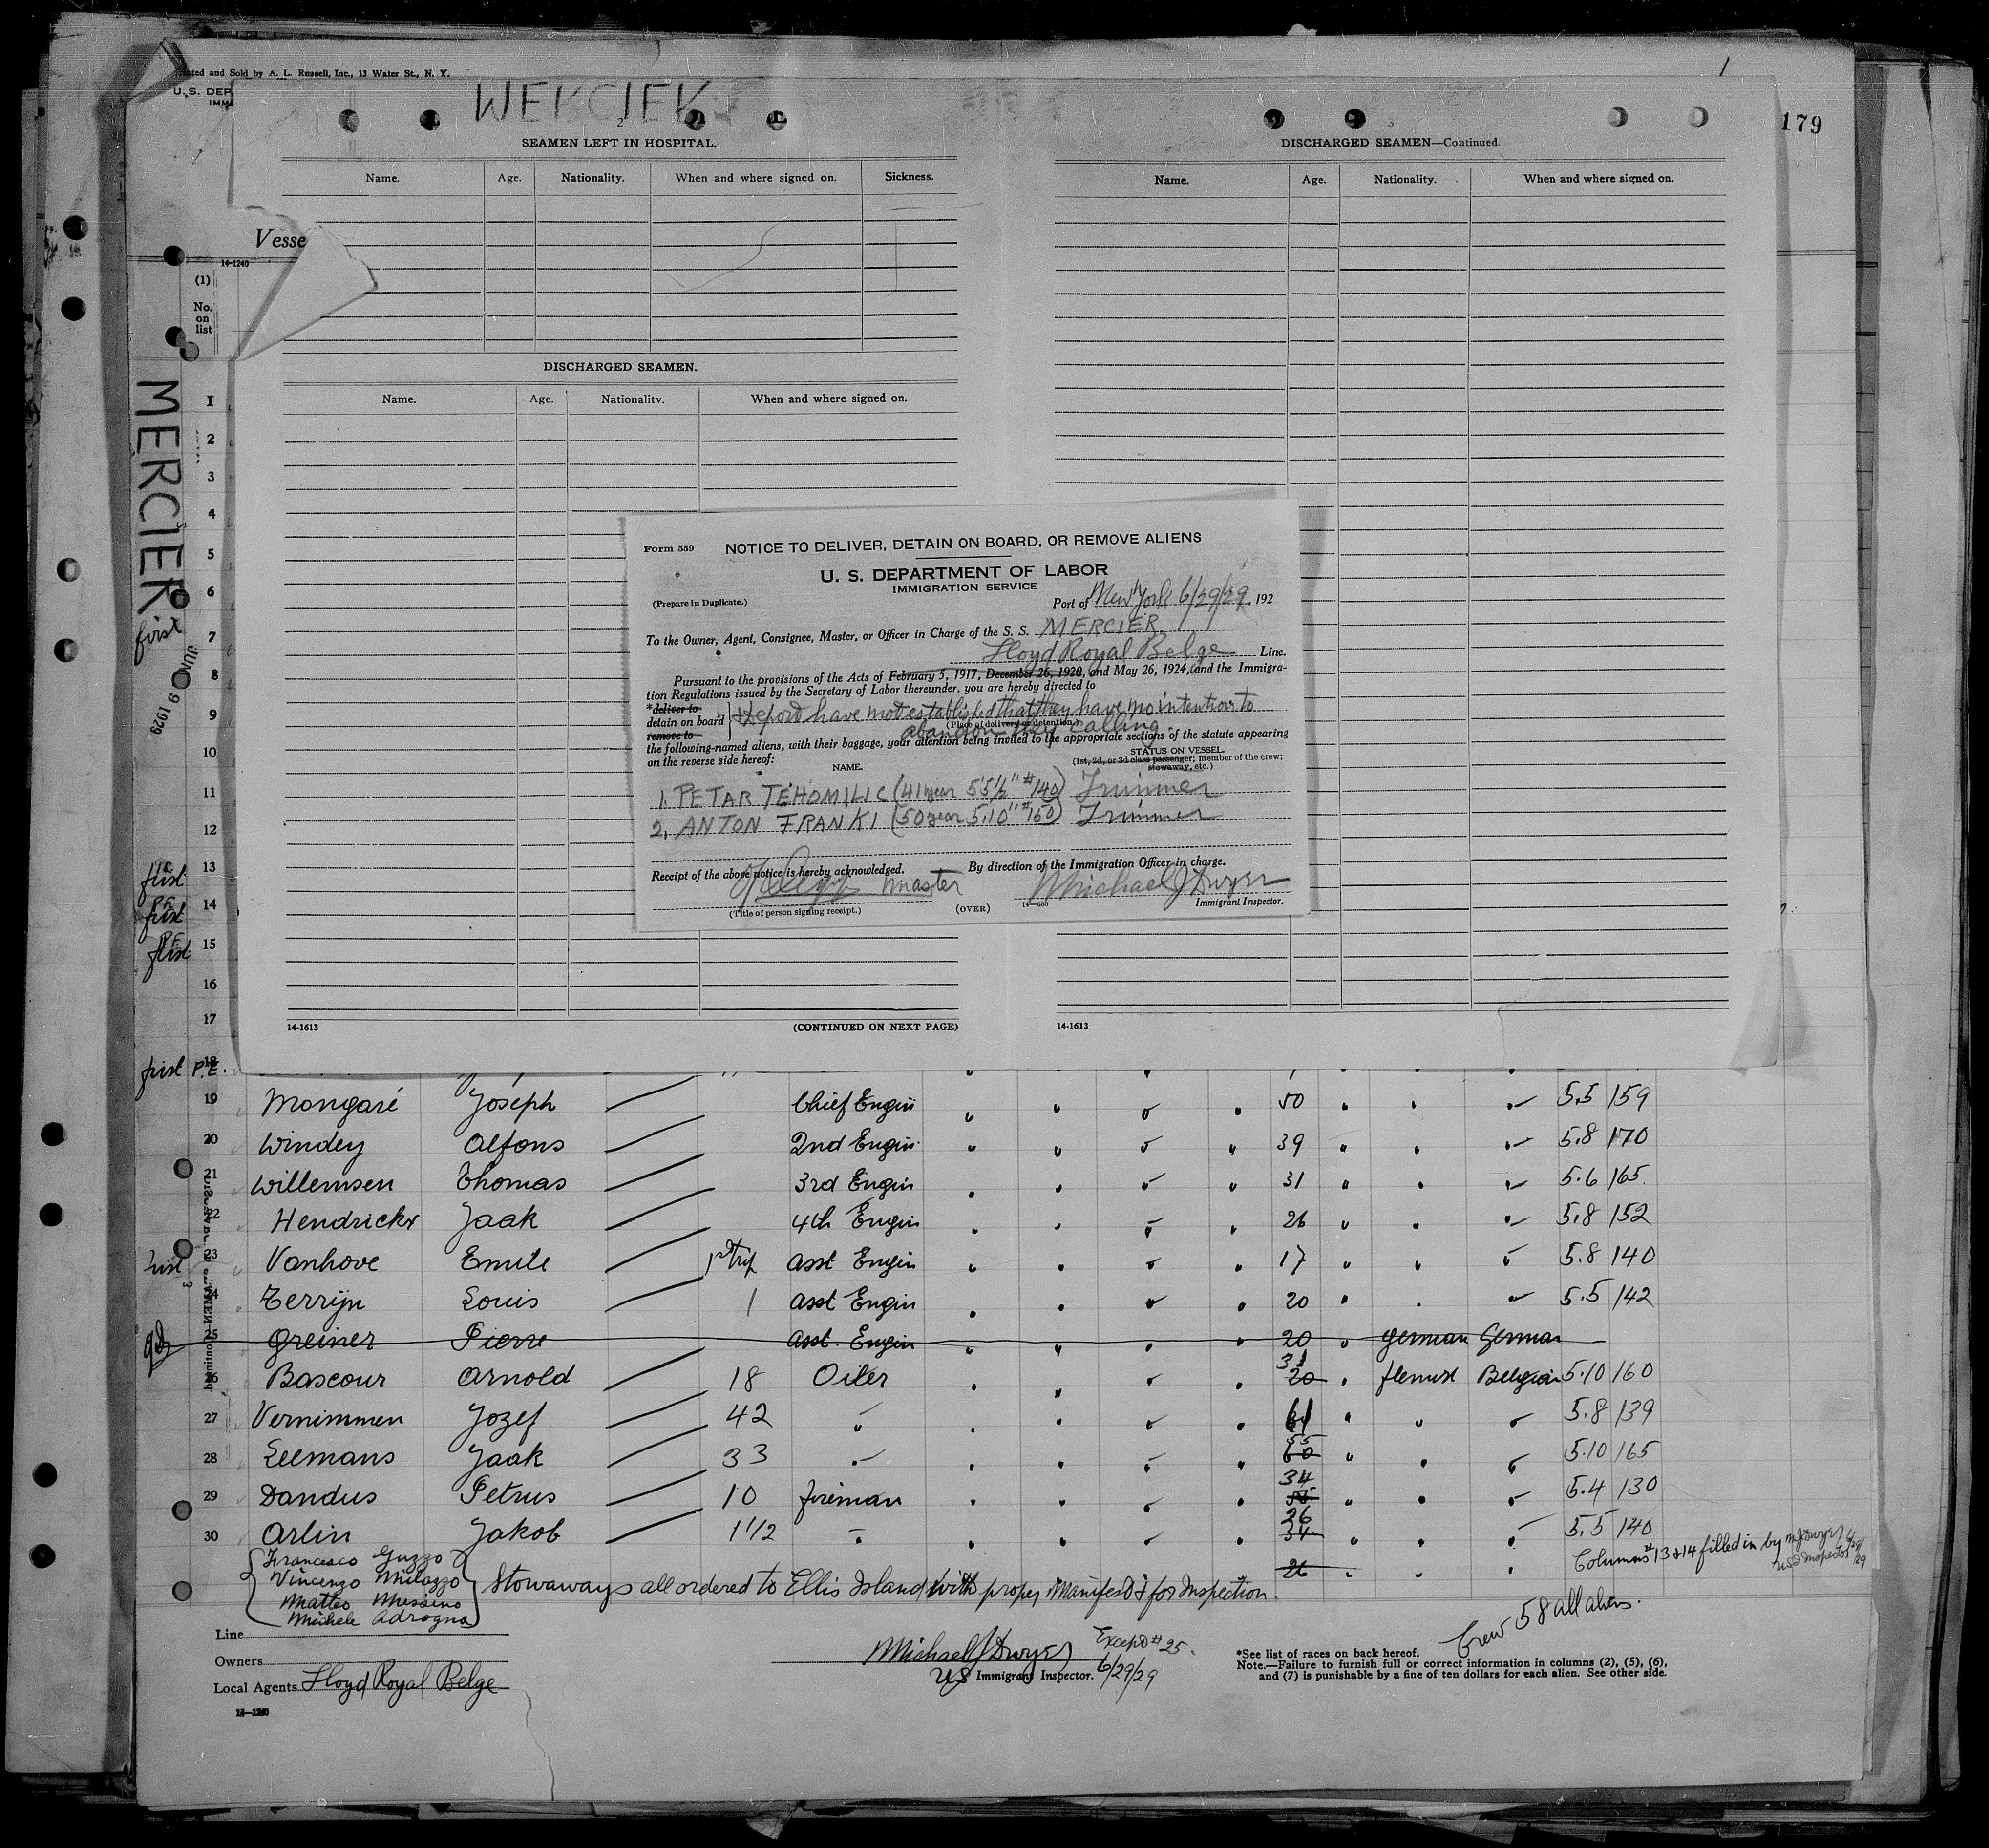 Printed and Sold by A. L. Russell, Inc., 13 Water St., N. Y.
U. S. DEP
IMMI
1
179
MERCIER
2
3
SEAMEN LEFT IN HOSPITAL.
Name. Age. Nationality. When and where signed on. Sickness.
DISCHARGED SEAMEN—Continued.
Name. Age. Nationality. When and where signed on.
Vesse
14-1240
(1)
No.
on
list
DISCHARGED SEAMEN.
Name. Age. Nationality. When and where signed on.
MERCIER
first
1
2
3
4
5
6
7
8
9
10
11
12
first 13
first 14
first 15
16
17
Form 559
NOTICE TO DELIVER, DETAIN ON BOARD, OR REMOVE ALIENS
U. S. DEPARTMENT OF LABOR
IMMIGRATION SERVICE
(Prepare in Duplicate.)
Port of New York 6/29/29, 192
To the Owner, Agent, Consignee, Master, or Officer in Charge of the S. S. MERCIER
Lloyd Royal Belge Line.
Pursuant to the provisions of the Acts of February 5, 1917, December 26, 1920, and May 26, 1924, and the Immigra-
tion Regulations issued by the Secretary of Labor thereunder, you are hereby directed to
*deliver to
detain on board
remove to
have not established that they have no intention to
(Place of delivery or detention.)
abandon their calling.
the following-named aliens, with their baggage, your attention being invited to the appropriate sections of the statute appearing
on the reverse side hereof:
NAME.
STATUS ON VESSEL
(1st, 2d, or 3d class passenger; member of the crew;
stowaway, etc.)
1. PETAR TEHOMILIC (41 year 5'5½" #140) Trimmer
2. ANTON FRANKI (50 year 5.10" #150) Trimmer
Receipt of the above notice is hereby acknowledged.
By direction of the Immigration Officer in charge.
master
Michael J Dwyer
(Title of person signing receipt.)
(OVER)
Immigrant Inspector.
14-1613
(CONTINUED ON NEXT PAGE)
14-1613
first P.E. 18
19 Mongaré Joseph Chief Engin 50 5.5 159
20 Windey Alfons 2nd Engin 39 5.8 170
21 Willemsen Thomas 3rd Engin 31 5.6 165
22 Hendrickx Jaak 4th Engin 26 5.8 152
first 23 Vanhove Emile 1st trip asst Engin 17 5.8 140
24 Terrijn Louis 1 asst Engin 20 5.5 142
25 Greiner Pierre asst. Engin 20 German German
26 Bascour Arnold 18 Oiler 31 20 flemish Belgian 5.10 160
27 Vernimmen Jozef 42 " 61 5.8 139
28 Leemans Jaak 33 " 55 60 5.10 165
29 Dandus Petrus 10 fireman 34 5.4 130
30 Arlin Jakob 1 1/2 " 26 34 5.5 140
26
Columns # 13 & 14 filled in by M J Dwyer
US Inspector
Francesco Guzzo
Vincenzo Milazzo
Matteo Messino
Michele Adrogna
Stowaways all ordered to Ellis Island with proper manifest for Inspection.
Crew 58 all aliens.
Line
Owners
Local Agents Lloyd Royal Belge
14-1240
Michael J Dwyer
Except # 25.
US Immigrant Inspector. 6/29/29
*See list of races on back hereof.
Note.—Failure to furnish full or correct information in columns (2), (5), (6),
and (7) is punishable by a fine of ten dollars for each alien. See other side.